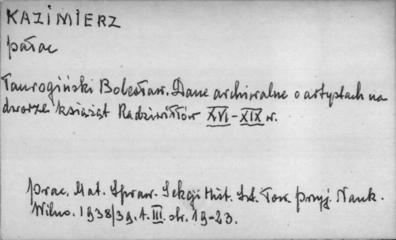 KAZIMIERZ
pałac
Taurogiński Bolesław. Dane archiwalne o artystach na
dworze książąt Radziwiłłów XVI-XIX w.
Prac. Mat. Spraw. Sekcji Hist. Szt. Tow. Przyj. Nauk.
Wilno. 1938/39. t. III. str. 19-23.